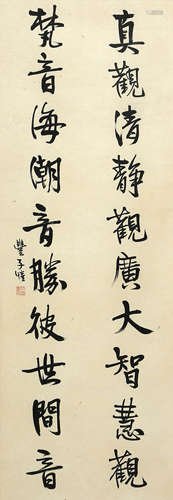 真觀清靜觀廣大智慧觀
梵音海潮音勝彼世間音
豐子愷